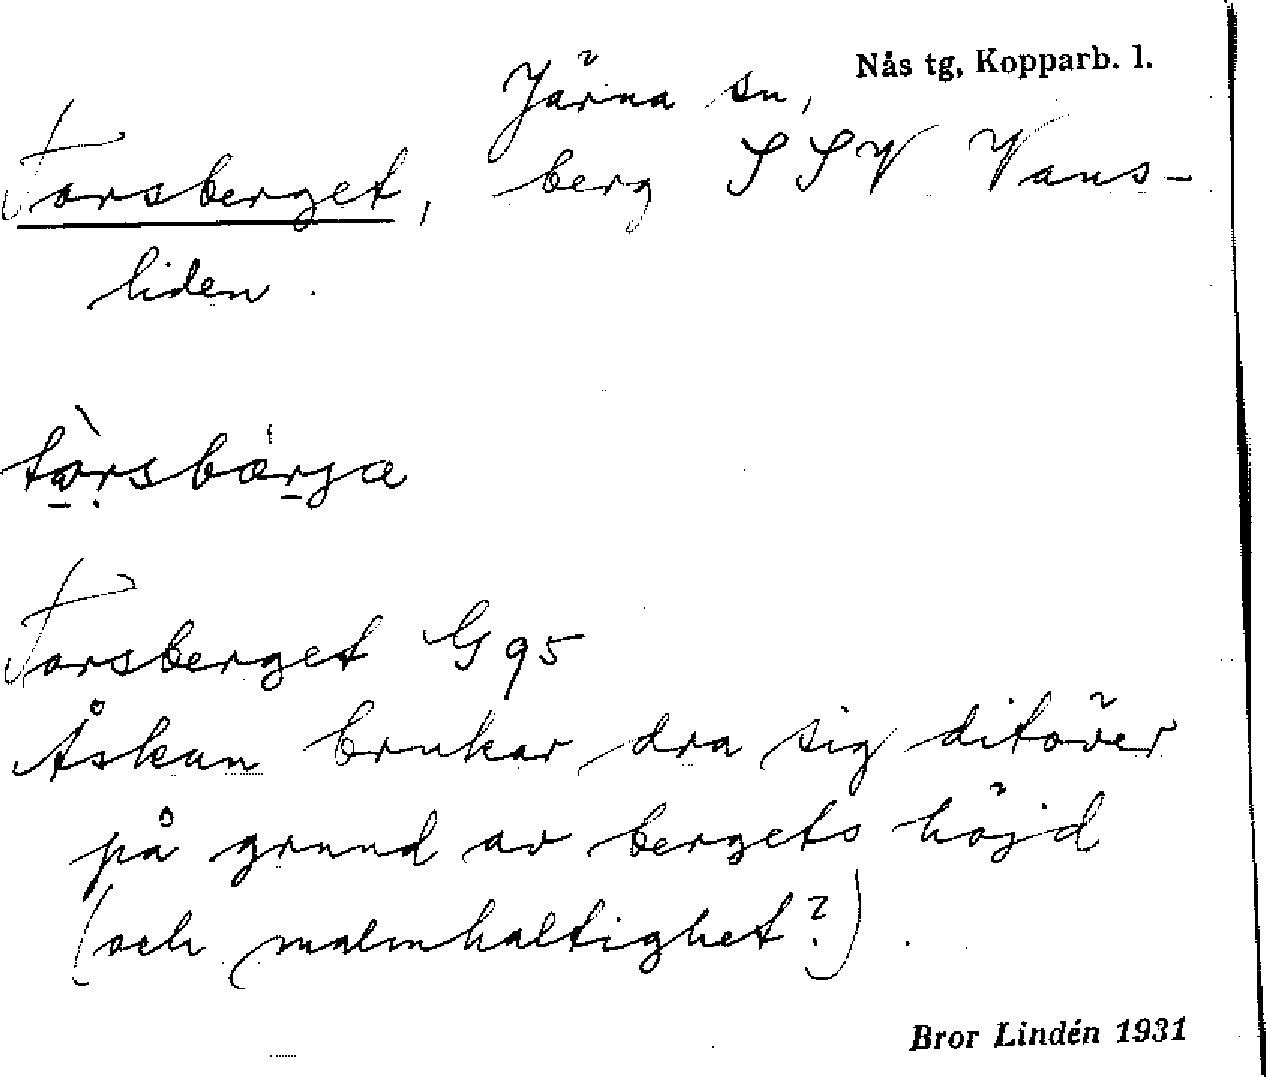 Nås tg, Kopparb. l.
Järna sn,
Torsberget, berg SSV Vans-
liden.
tòrsbærja
Torsberget G 95
Åskan brukar dra sig ditöver
på grund av bergets höjd
(och malmhaltighet?).
Bror Lindén 1931